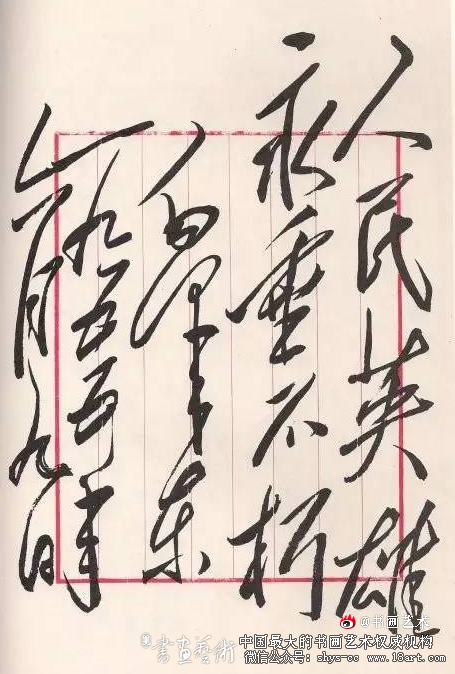 人民英雄
永垂不朽
毛泽东
一九五五年
六月九日
@书画艺术
書画艺術
中国最大的书画艺术权威机构
微信公众号：shys-cc www.18art.com